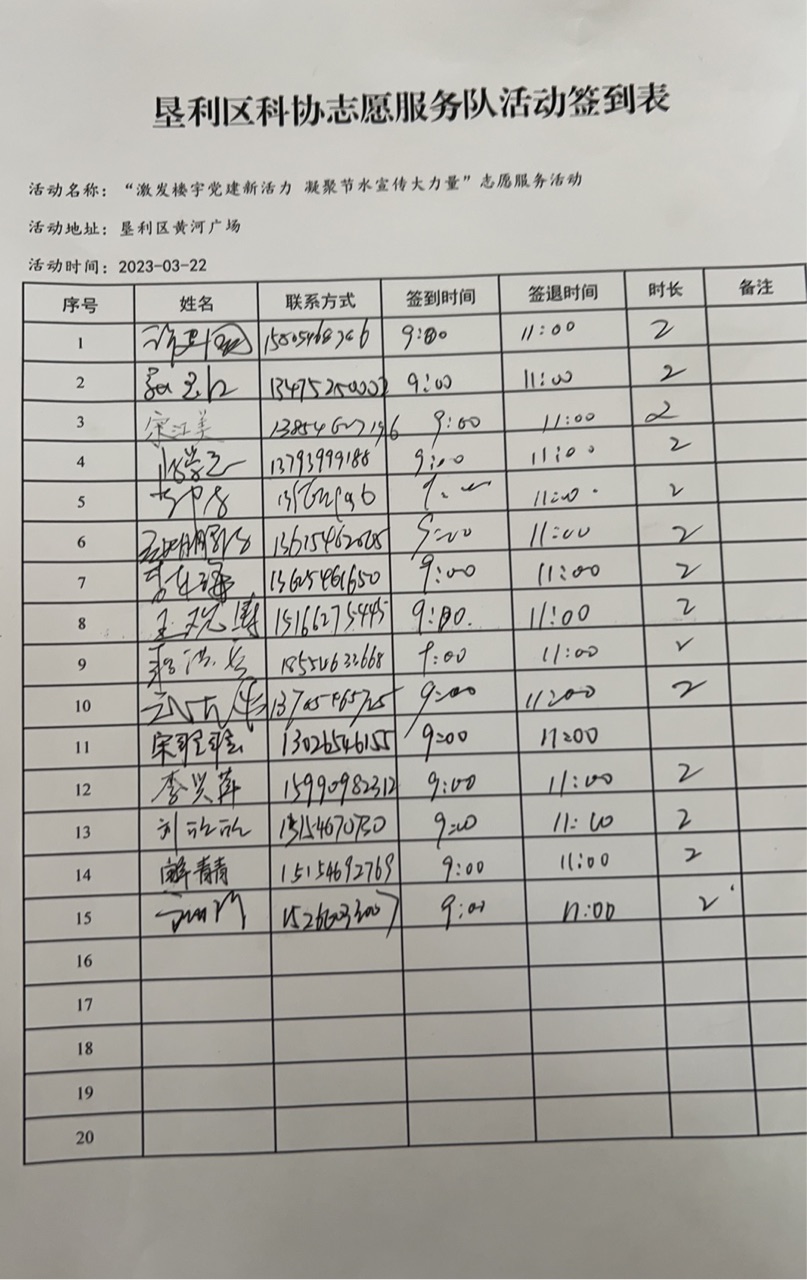 垦利区科协志愿服务队活动签到表
活动名称：“激发楼宇党建新活力 凝聚节水宣传大力量”志愿服务活动
活动地址：垦利区黄河广场
活动时间：2023-03-22
序号 姓名 联系方式 签到时间 签退时间 时长 备注
1 9:00 11:00 2
2 9:00 11:00 2
3 宋江美 9:00 11:00 2
4 13793999188 9:00 11:00 2
5 11:00 2
6 9:00 11:00 2
7 13625461650 9:00 11:00 2
8 15166275445 9:00 11:00 2
9 18554632668 9:00 11:00 2
10 9:00 11:00 2
11 13026546155 9:00 11:00
12 李兴萍 15990982312 9:00 11:00 2
13 刘欣欣 9:00 11:00 2
14 解青青 15154692769 9:00 11:00 2
15 9:00 11:00 2
16
17
18
19
20